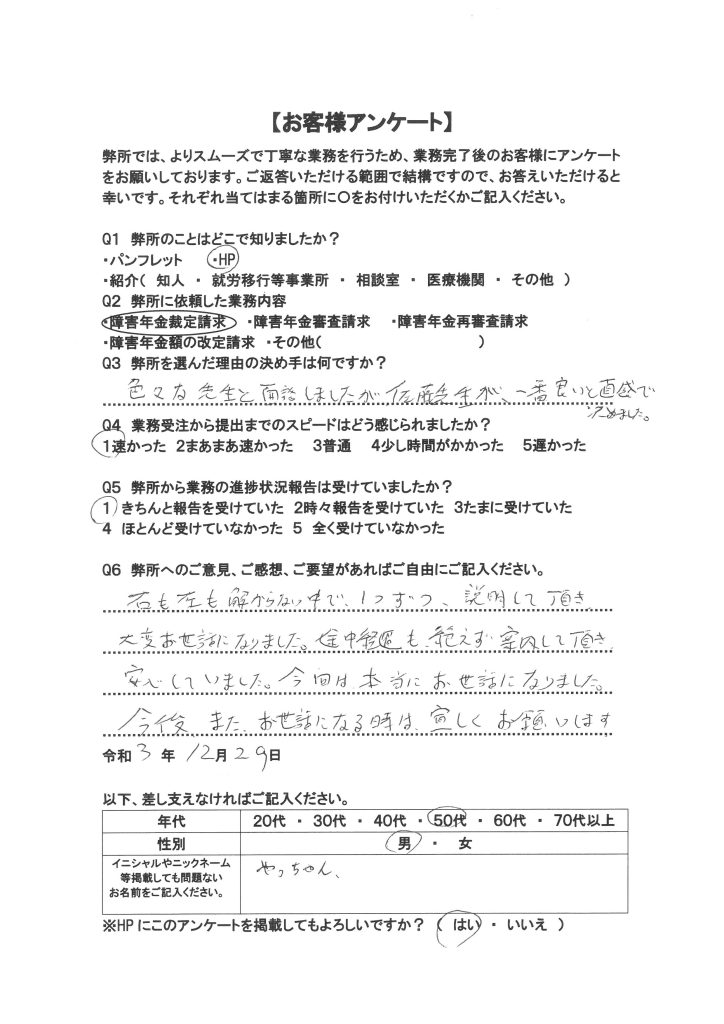 【お客様アンケート】
弊所では、よりスムーズで丁寧な業務を行うため、業務完了後のお客様にアンケート
をお願いしております。ご返答いただける範囲で結構ですので、お答えいただけると
幸いです。それぞれ当てはまる箇所に〇をお付けいただくかご記入ください。
Q1 弊所のことはどこで知りましたか？
・パンフレット ・HP
・紹介（ 知人 ・ 就労移行等事業所 ・ 相談室 ・ 医療機関 ・ その他 ）
Q2 弊所に依頼した業務内容
・障害年金裁定請求 ・障害年金審査請求 ・障害年金再審査請求
・障害年金額の改定請求 ・その他（ ）
Q3 弊所を選んだ理由の決め手は何ですか？
色々な先生と面談しましたが佐藤先生が、一番良いと直感で
決めました。
Q4 業務受注から提出までのスピードはどう感じられましたか？
1速かった 2まあまあ速かった 3普通 4少し時間がかかった 5遅かった
Q5 弊所から業務の進捗状況報告は受けていましたか？
1 きちんと報告を受けていた 2時々報告を受けていた 3たまに受けていた
4 ほとんど受けていなかった 5 全く受けていなかった
Q6 弊所へのご意見、ご感想、ご要望があればご自由にご記入ください。
右も左も解からない中で、1つずつ、説明して頂き
大変お世話になりました。途中経過も、絶えず案内して頂き、
安心していました。今回は本当にお世話になりました。
今後 また、お世話になる時は、宜しくお願いします
令和 3 年 12月 29日
以下、差し支えなければご記入ください。
年代 20代 ・ 30代 ・ 40代 ・ 50代 ・ 60代 ・ 70代以上
性別 男 ・ 女
イニシャルやニックネーム
等掲載しても問題ない
お名前をご記入ください。
やっちゃん、
※HPにこのアンケートを掲載してもよろしいですか？（ はい ・ いいえ ）